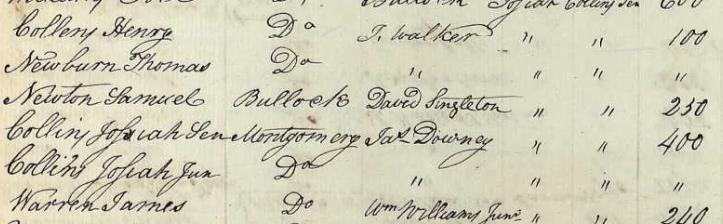 Bullock Josiah Collins Sen 600
Collens Henry Do T. Walker " " 100
Newburn Thomas Do " " " "
Newton Samuel Bullock David Singleton " " 250
Collins Josiah Sen Montgomery Jas. Downey " " 400
Collins Josiah Jun Do " " " "
Warren James Do Wm Williams Junr " " 240